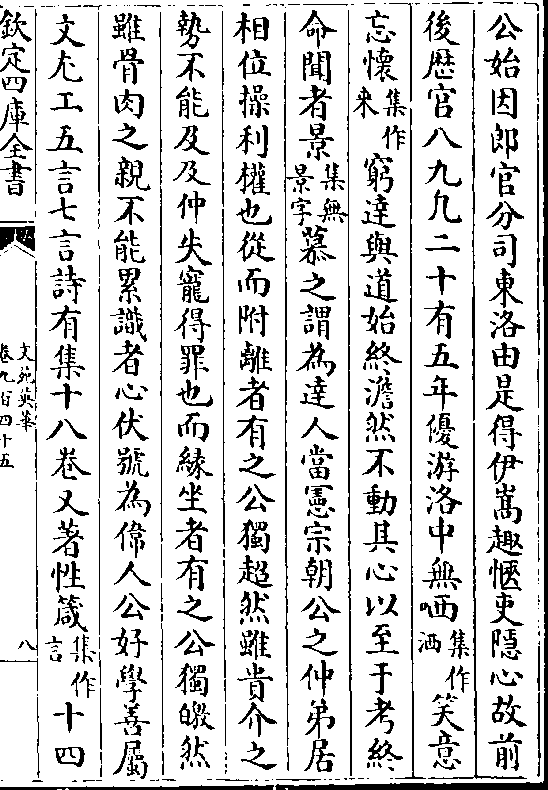 公始因郎官分司東洛由是得伊嵩趣愜吏隱心故前
後歴官八九凡二十有五年優游洛中無哂集作洒笑意
忘懷集作来窮達與道始終澹然不動其心以至于考終
命聞者景集無景字慕之謂為達人當憲宗朝公之仲弟居
相位操利權也從而附離者有之公獨超然雖貴介之
勢不能及及仲失寵得罪也而緣坐者有之公獨皦然
雖骨肉之親不能累識者心伏號為偉人公好學善屬
文尤工五言七言詩有集十八卷又著性箴集作言十四
欽定四庫全書
文苑英華
卷九百四十五
八